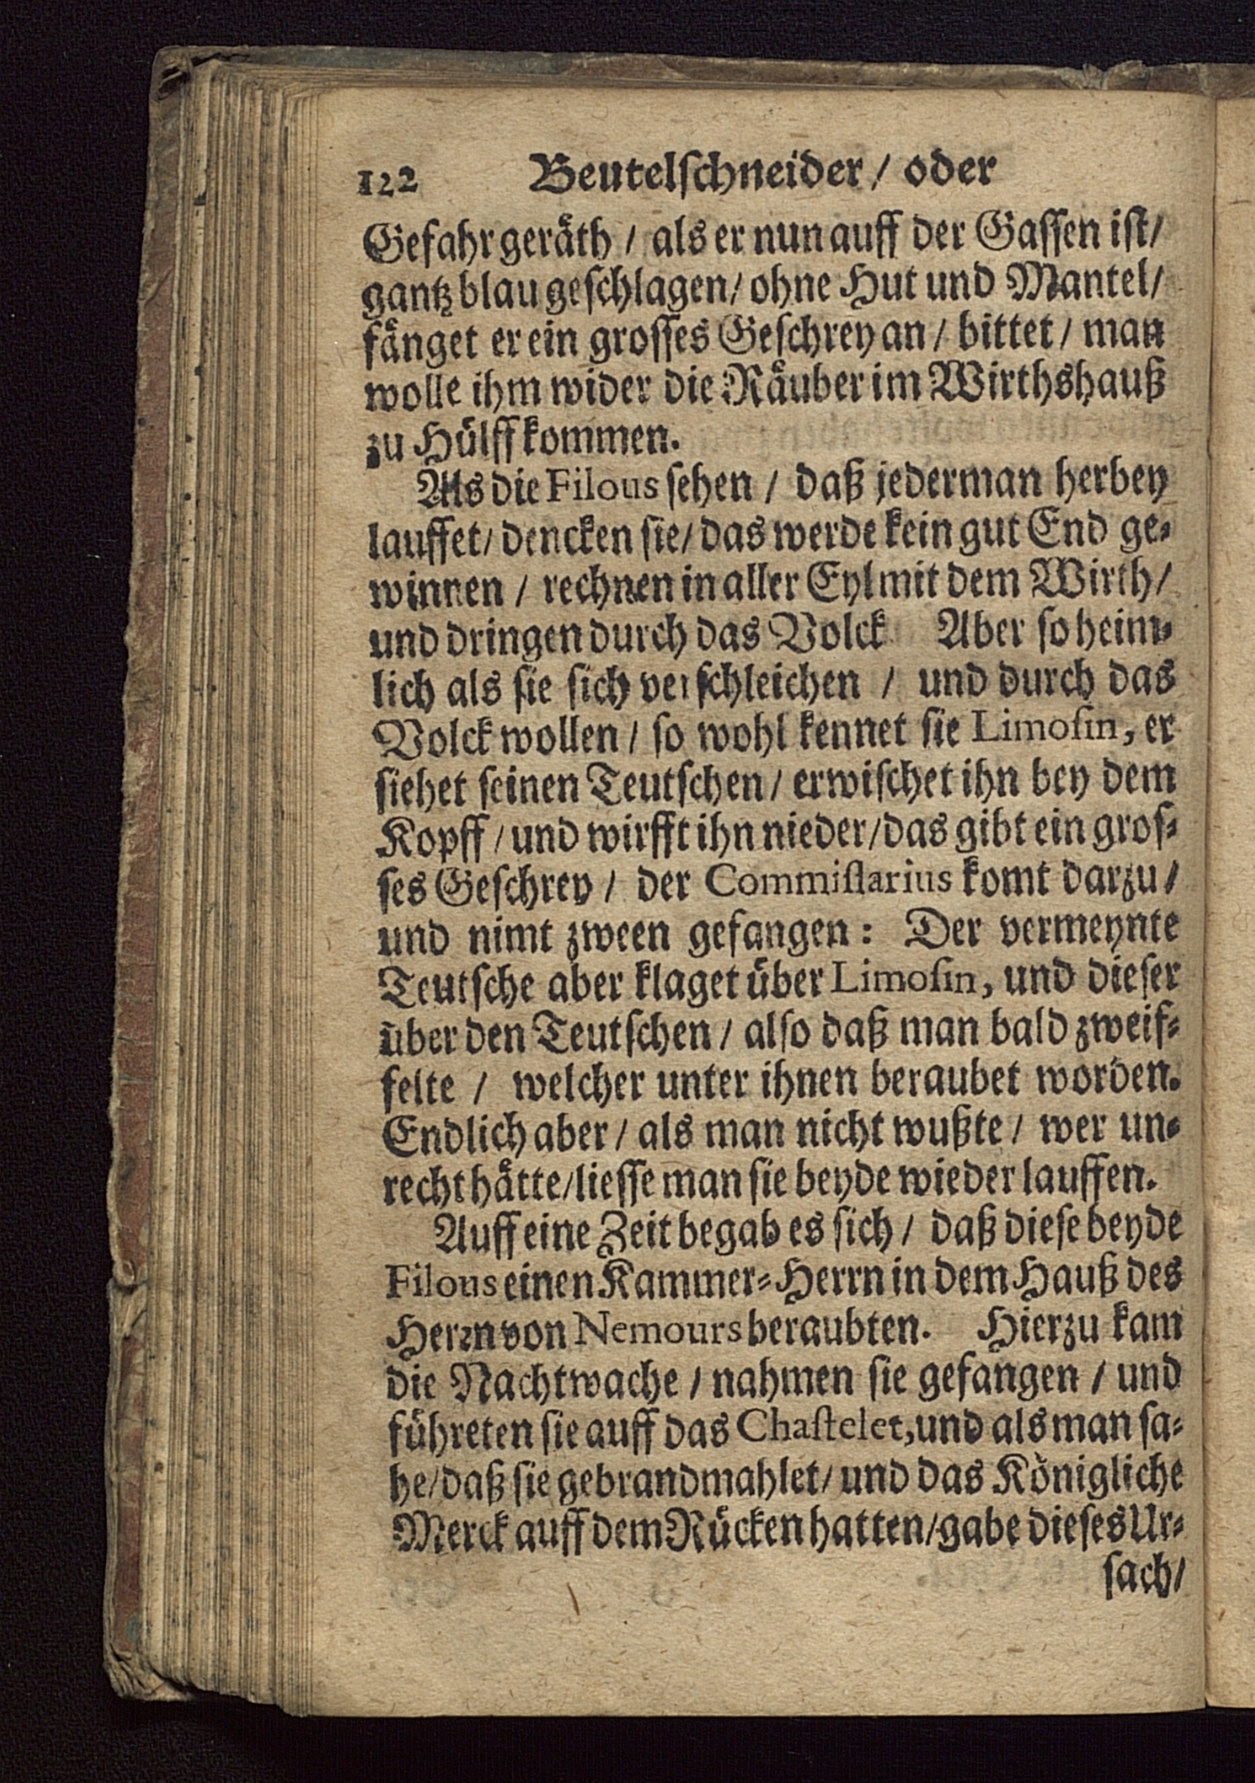 122 Beutelschneider / oder
Gefahr geräth / als er nun auff der Gassen ist /
gantz blau geschlagen / ohne Hut und Mantel /
fänget er ein grosses Geschrey an / bittet / man
wolle ihm wider die Räuber im Wirthshauß
zu Hülff kommen.
Als die Filous sehen / daß jederman herbey
lauffet / dencken sie / das werde kein gut End ge-
winnen / rechnen in aller Eyl mit dem Wirth /
und dringen durch das Volck Aber so heim-
lich als sie sich verschleichen / und durch das
Volck wollen / so wohl kennet sie Limosin, er
siehet seinen Teutschen / erwischet ihn bey dem
Kopff / und wirfft ihn nieder / das gibt ein gros-
ses Geschrey / der Commissarius komt darzu /
und nimt zween gefangen: Der vermeynte
Teutsche aber klaget über Limosin, und dieser
über den Teutschen / also daß man bald zweif-
felte / welcher unter ihnen beraubet worden.
Endlich aber / als man nicht wußte / wer un-
recht hätte / liesse man sie beyde wieder lauffen.
Auff eine Zeit begab es sich / daß diese beyde
Filous einen Kammer-Herrn in dem Hauß des
Herrn von Nemours beraubten. Hierzu kam
die Nachtwache / nahmen sie gefangen / und
führeten sie auff das Chastelet, und als man sa-
he / daß sie gebrandmahlet / und das Königliche
Merck auff dem Rücken hatten / gabe dieses Ur-
sach /